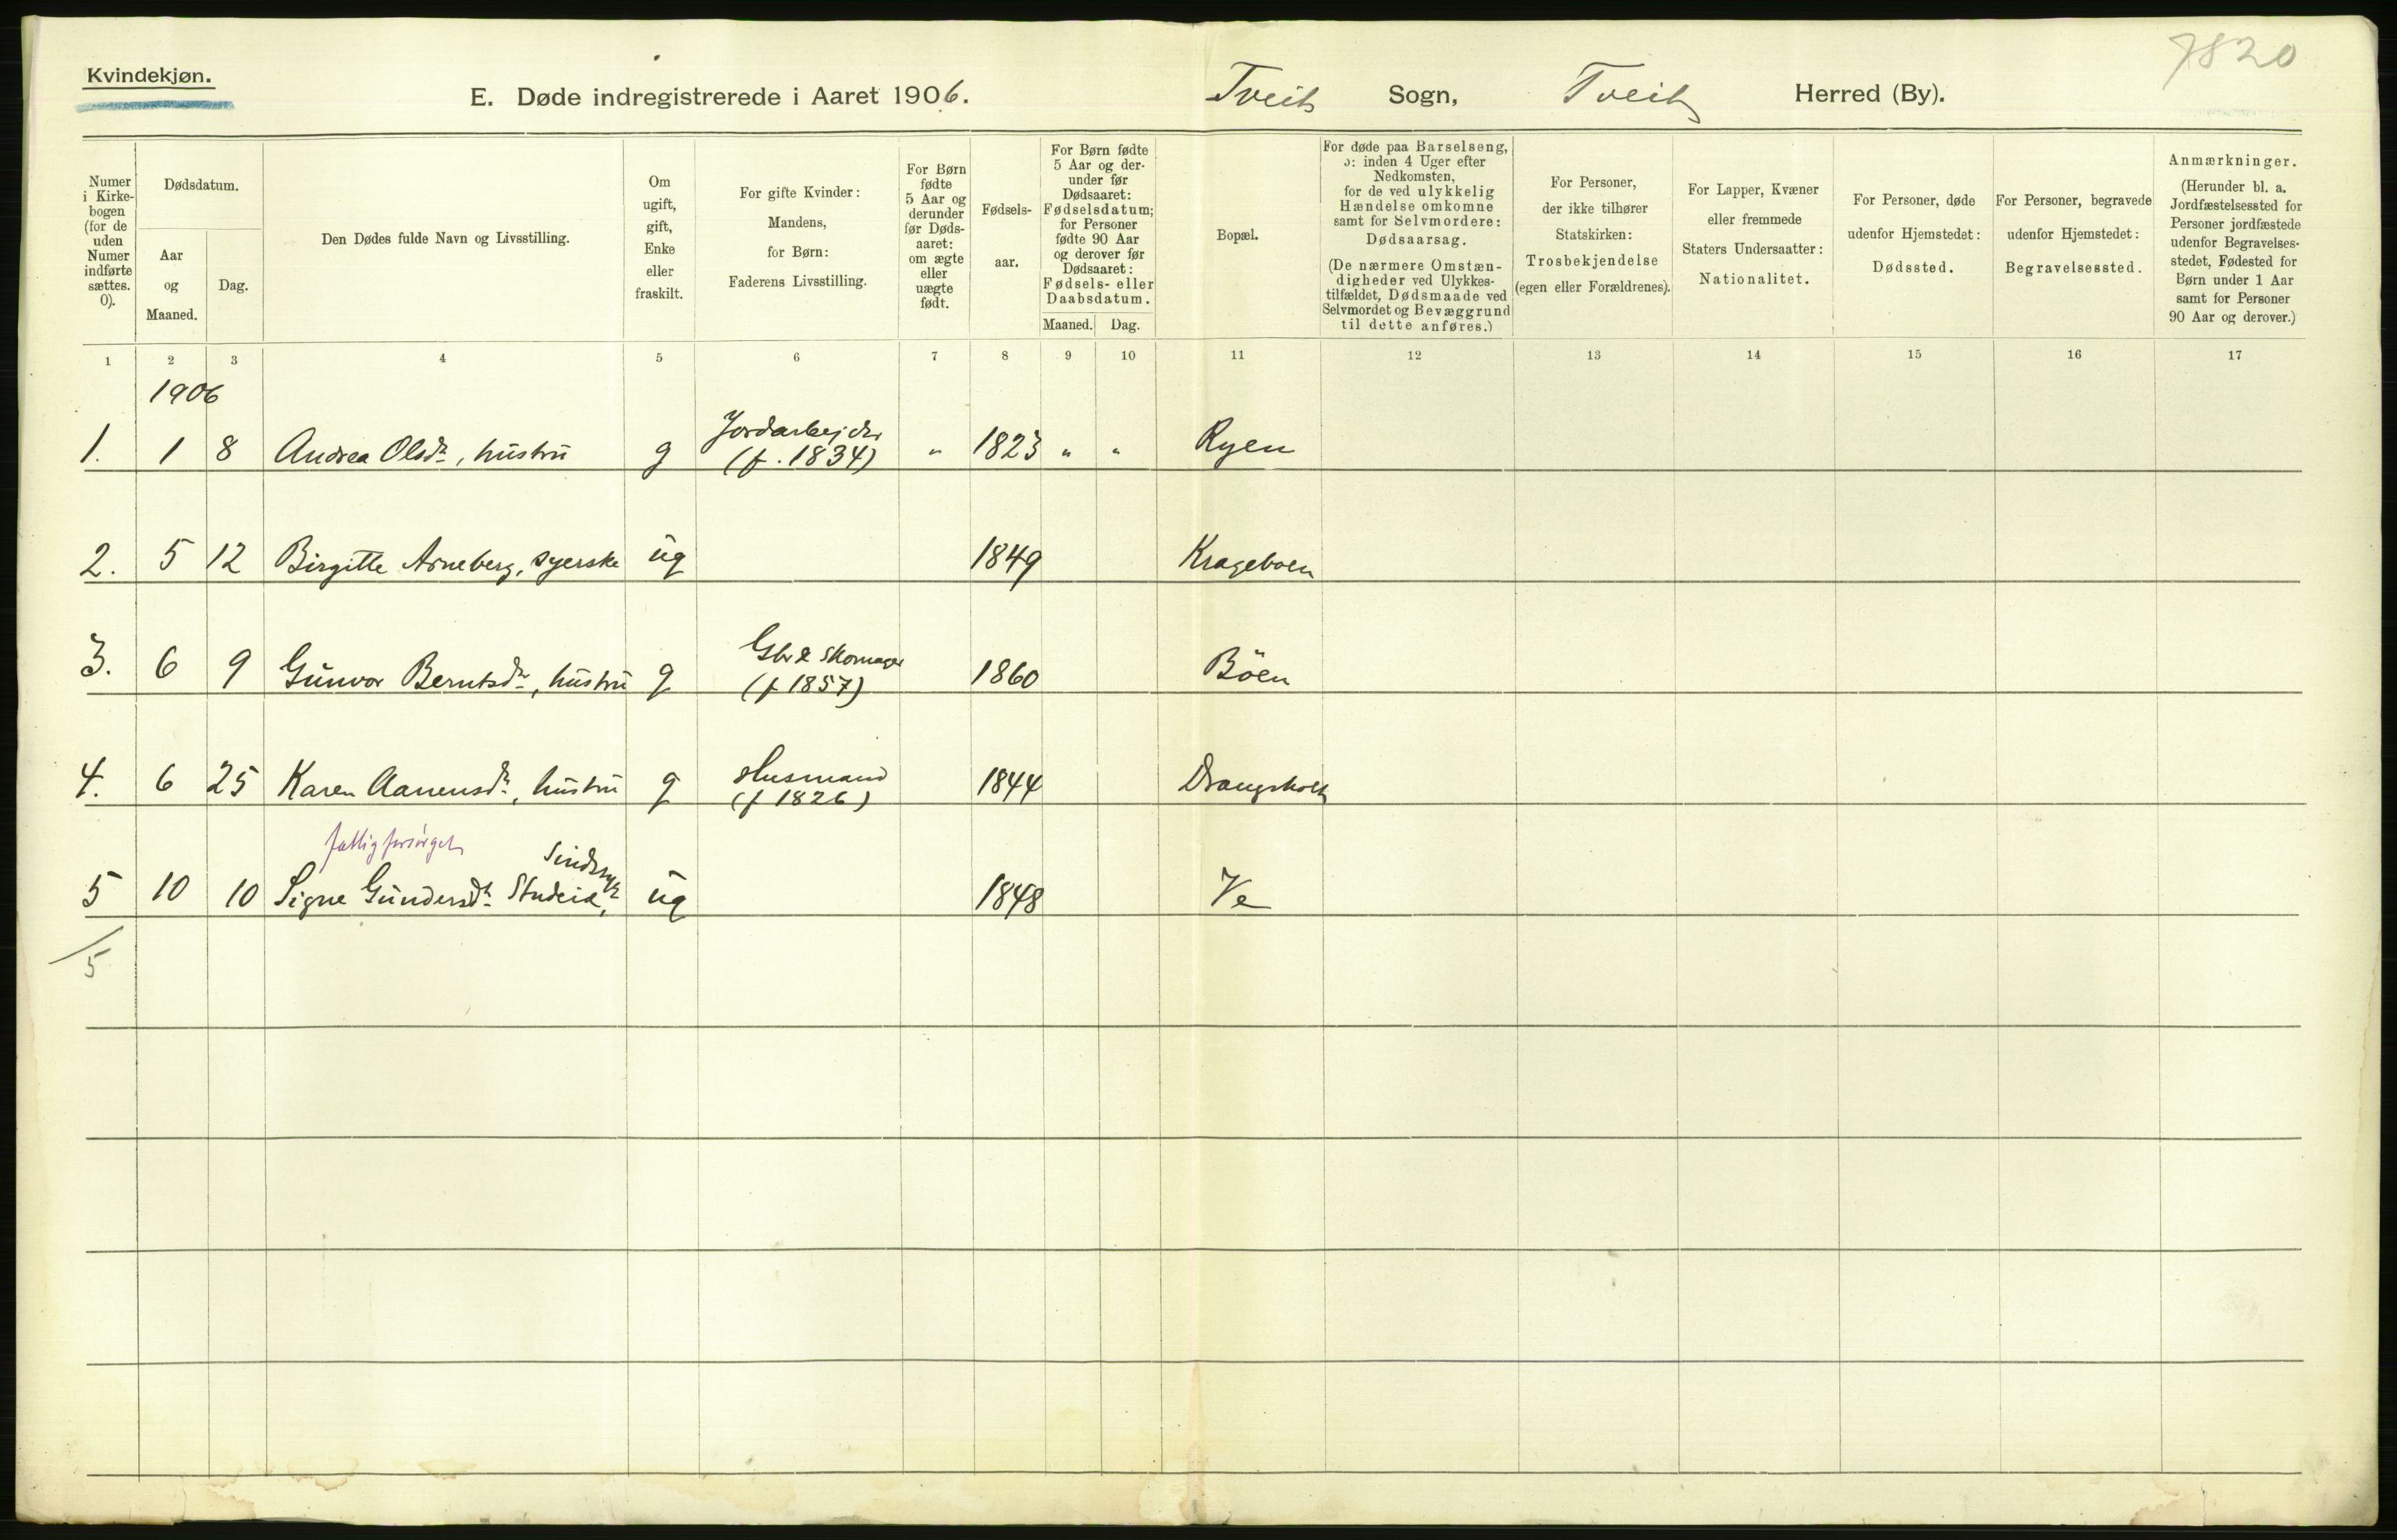 7820
Kvindekjøn.
E. Døde indregistrerede i Aaret 1906. Tveit Sogn, Tveit Herred (By).
Numer i Kirkebogen (for de uden Numer indførte sættes. 0).
Dødsdatum.
Aar og Maaned.
Dag.
Den Dødes fulde Navn og Livsstilling.
Om ugift, gift, Enke eller fraskilt.
For gifte Kvinder: Mandens, for Børn: Faderens Livsstilling.
For Børn fødte 5 Aar og derunder før Døds-aaret: om ægte eller uægte født.
Fødsels-aar.
For Børn fødte 5 Aar og der-under før Dødsaaret: Fødselsdatum; for Personer fødte 90 Aar og derover før Dødsaaret: Fødsels- eller Daabsdatum.
Maaned. Dag.
Bopæl.
For døde paa Barselseng, ɔ: inden 4 Uger efter Nedkomsten, for de ved ulykkelig Hændelse omkomne samt for Selvmordere: Dødsaarsag. (De nærmere Omstæn-digheder ved Ulykkes-tilfældet, Dødsmaade ved Selvmordet og Bevæggrund til dette anføres.)
For Personer, der ikke tilhører Statskirken: Trosbekjendelse (egen eller Forældrenes).
For Lapper, Kvæner eller fremmede Staters Undersaatter: Nationalitet.
For Personer, døde udenfor Hjemstedet: Dødssted.
For Personer, begravede udenfor Hjemstedet: Begravelsessted.
Anmærkninger. (Herunder bl. a. Jordfæstelsessted for Personer jordfæstede udenfor Begravelses-stedet, Fødested for Børn under 1 Aar samt for Personer 90 Aar og derover.)
1 2 3 4 5 6 7 8 9 10 11 12 13 14 15 16 17
1906
1. 1 8 Andrea Olsdr, hustru g Jordarbejder (f. 1834) " 1823 " " Ryen
2. 5 12 Birgitte Arneberg, syerske ug 1849 Krageboen
3. 6 9 Gunvor Berntsdr, hustru g Gbr & Skomager (f 1857) 1860 Böen
4. 6 25 Karen Aanensdr, hustru g Husmand (f 1826) 1844 Drangsholt
fattigforsørget
5 10 10 Signe Gundersdr Studeia, Sindssyk ug 1848 Ve
/5